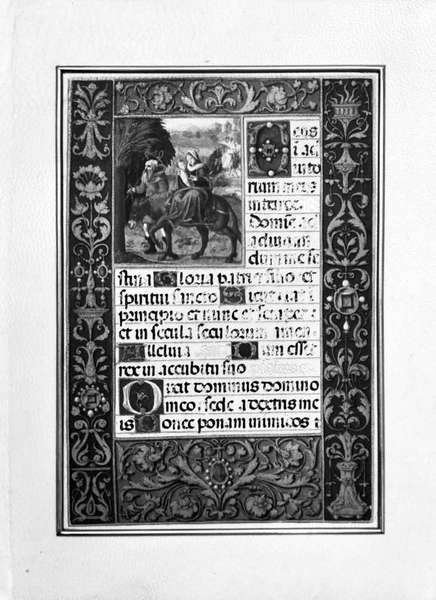 Deus
iuto
rium meu
intende
Domine ad
adiuuan
dum me fe
stina Gloria patri et filio et
spiritui sancto Sicut erat in
principio et nunc et semper
et in secula seculorum amen
Alleluia Dum esset
rex in accubitu suo
Dixit dominus domino
meo sede a dextris me
is Donec ponam inimicos t